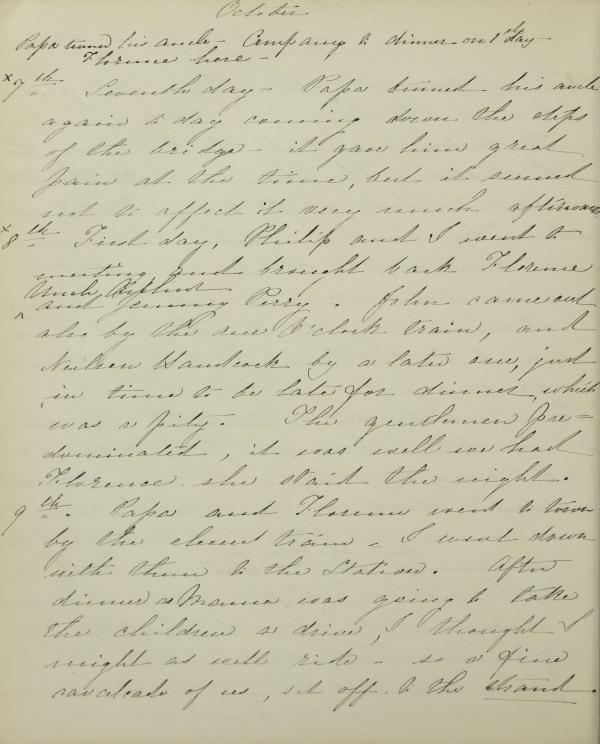 October
Papa turned his ancle - Company to dinner on 1st day
Florence here -
x7th. Seventh day - Papa turned his ancle
again to day coming down the steps
of the bridge - it gave him great
pain at the time, but it seemed
not to affect it very much afterwards
x8th. First day, Philip and I went to
meeting and brought back Florence
Uncle Arthur
^ and Jemmy Perry. John came out
also by the one O'clock train, and
Neilson Handcock by a later one, just
in time to be late for dinner, which
was a pity. The gendemen pre-
dominated, it was well we had
Florence. she staid the night.
9th. Papa and Florence went to town
by the eleven train - I went down
with them to the Station. After
dinner as Mama was going to take
the children a drive, I thought I
might as well ride - so a fine
cavalcade of us, set off to the strand.